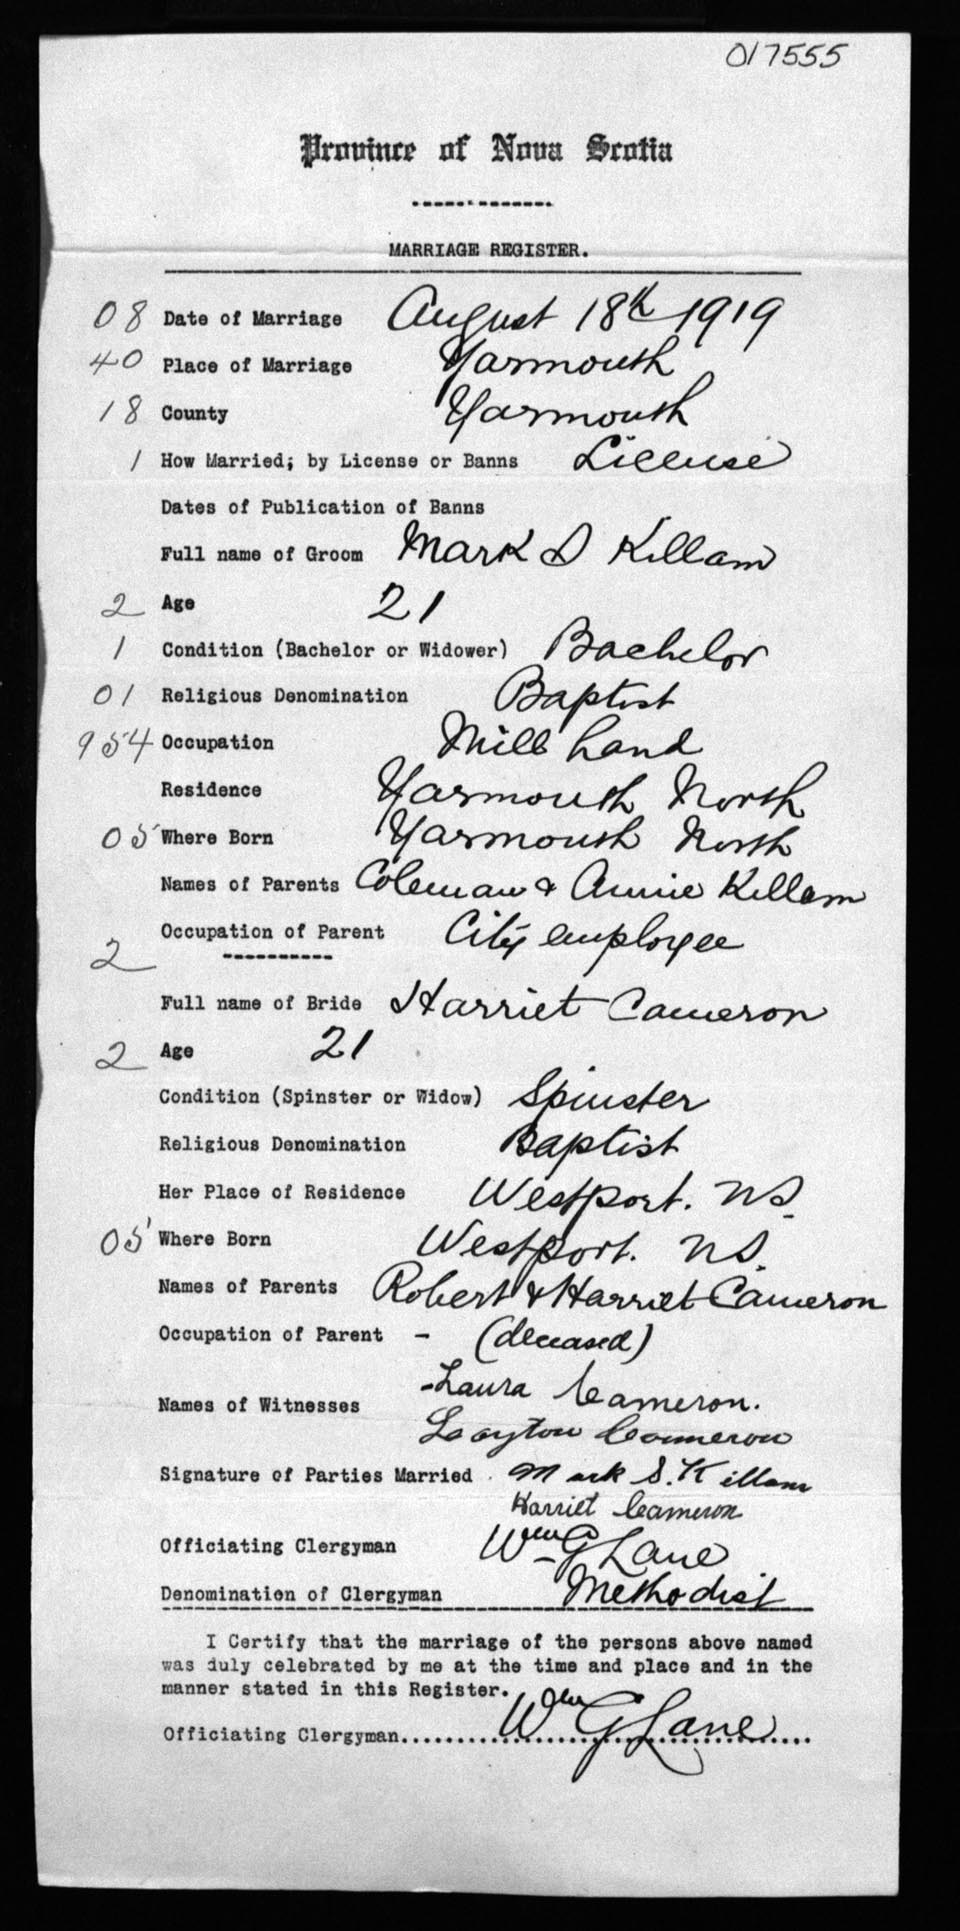 017555
Province of Nova Scotia
MARRIAGE REGISTER.
08 Date of Marriage August 18th 1919
40 Place of Marriage Yarmouth
18 County Yarmouth
1 How Married; by License or Banns License
Dates of Publication of Banns
Full name of Groom Mark S Killam
2 Age 21
1 Condition (Bachelor or Widower) Bachelor
01 Religious Denomination Baptist
954 Occupation Mill hand
Residence Yarmouth North
05 Where Born Yarmouth North
Names of Parents Coleman & Annie Killam
Occupation of Parent City employee
2
Full name of Bride Harriet Cameron
2 Age 21
Condition (Spinster or Widow) Spinster
Religious Denomination Baptist
Her Place of Residence Westport. NS.
05 Where Born Westport. NS.
Names of Parents Robert & Harriet Cameron
Occupation of Parent - (deceased)
Names of Witnesses - Laura Cameron.
Layton Cameron
Signature of Parties Married Mark S. Killam
Harriet Cameron
Officiating Clergyman Wm G Lane
Denomination of Clergyman Methodist
I Certify that the marriage of the persons above named
was duly celebrated by me at the time and place and in the
manner stated in this Register.
Officiating Clergyman.... Wm G Lane